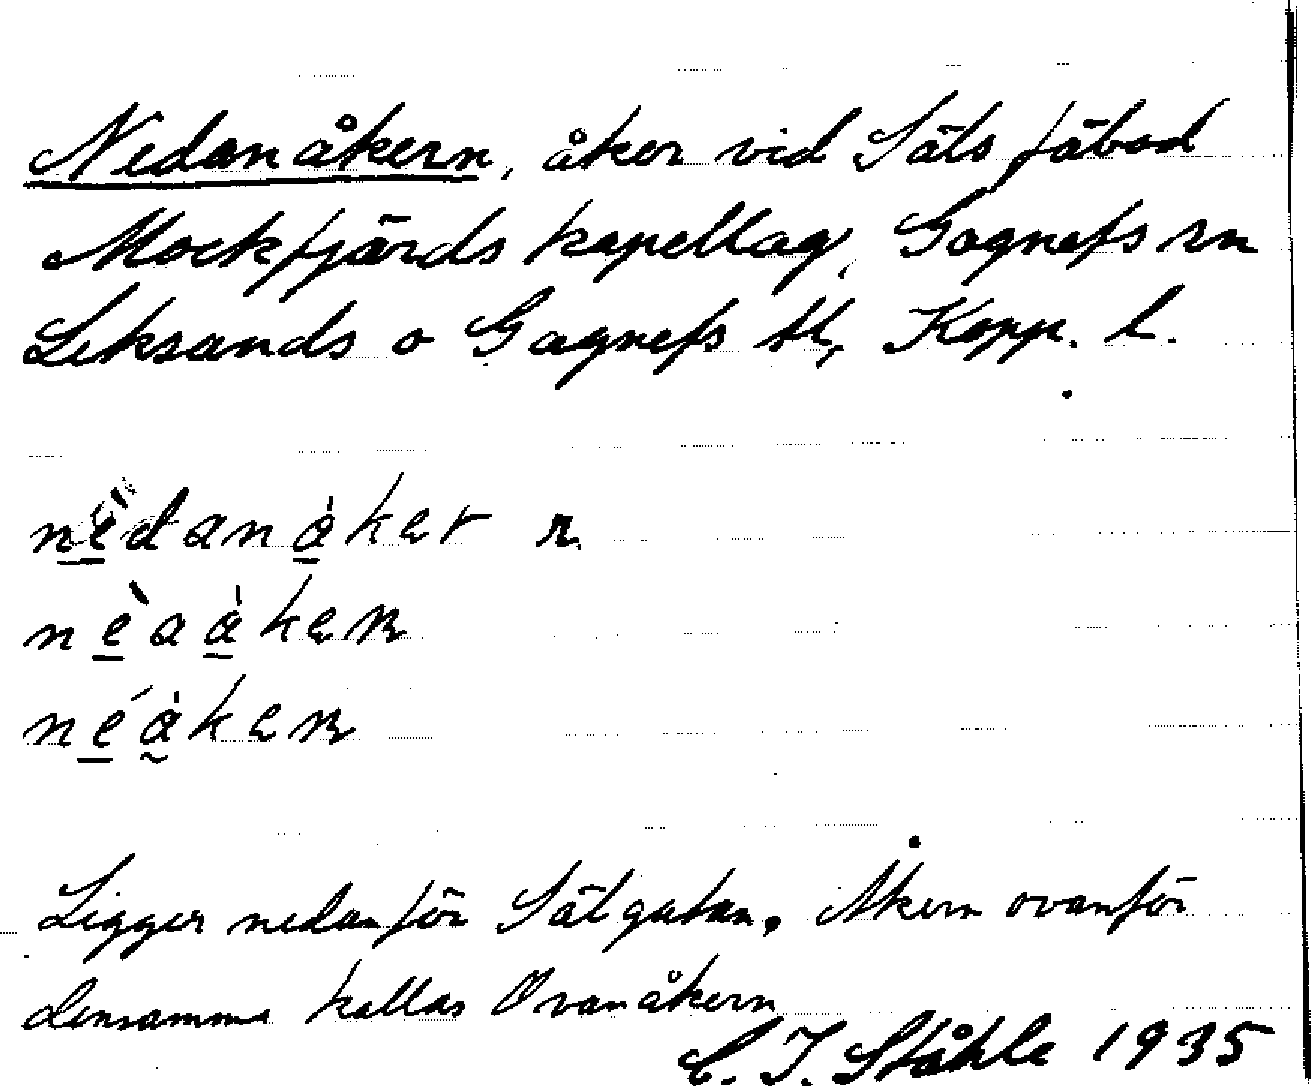 Nedanåkern, åker vid Säts fäbod
Mockfjärds kapellag, Gagnefs sn
Leksands o Gagnefs tl, Kopp. l.
nèdanàker r.
nèaàkeṇ
néàkeṇ
Ligger nedanför Sätgatan. Åkern ovanför
densamma kallas Ovanåkern
C. I. Ståhle 1935